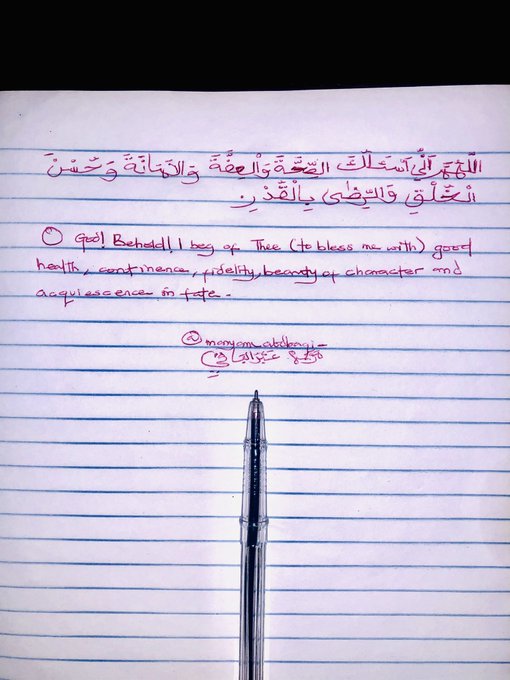 اللّٰهُمَّ اِنِّي اَسْئَلُكَ الصِّحَّةَ وَالْعِفَّةَ وَالْاَمَانَةَ وَحُسْنَ
الْخُلْقِ وَالرِّضٰى بِالْقَدْرِ.
O God! Behold! I beg of Thee (to bless me with) good
health, continence, fidelity, beauty of character and
acquiescence in fate.
@maryam_abdbaqi_
مريم عبدالباقي